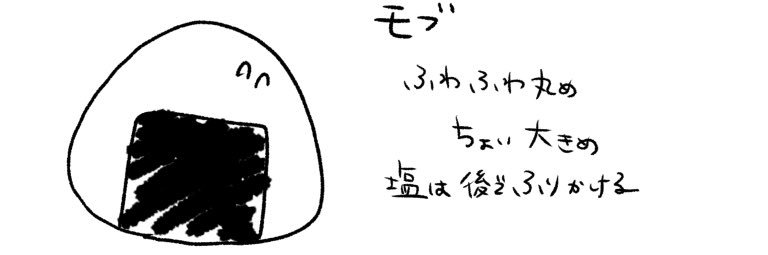 モブ
ふわふわ丸め
ちょい大きめ
塩は後でふりかける